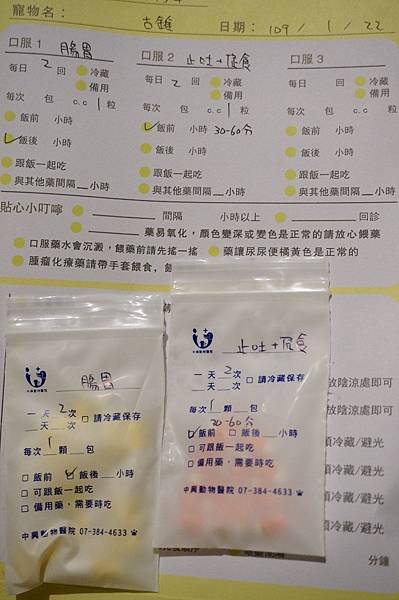 寵物名： 古錐 日期： 109 / 1 / 22
口服 1 腸胃
每日 2 回 冷藏
備用
每次 包 c.c 1 粒
飯前 小時
✓飯後 小時
跟飯一起吃
與其他藥間隔__小時
口服 2 止吐+促食
每日 2 回 冷藏
備用
每次 包 c.c 1 粒
✓飯前 小時 30-60分
飯後 小時
跟飯一起吃
與其他藥間隔__小時
口服 3
每日 回 冷藏
備用
每次 包 c.c 粒
飯前 小時
飯後 小時
跟飯一起吃
與其他藥間隔__小時
貼心小叮嚀 ______ 間隔 小時以上 ______ 回診
______ 藥易氧化，顏色變深或變色是正常的請放心餵藥
口服藥水會沉澱，餵藥前請先搖一搖 藥讓尿尿便橘黃色是正常的
腫瘤化療藥請帶手套餵食，
放陰涼處即可
放陰涼處即可
須冷藏/避光
須冷藏/避光
須冷藏/避光
分鐘
中興動物醫院
腸胃
一天 2 次 □ 請冷藏保存
一天__次
每次 1 顆__包
□ 飯前 ✓飯後__小時
□ 可跟飯一起吃
□ 備用藥，需要時吃
中興動物醫院 07-384-4633
中興動物醫院
止吐+促食
一天 2 次 □ 請冷藏保存
一天__次
每次 1 顆__包
30-60分
✓飯前 □ 飯後__小時
□ 可跟飯一起吃
□ 備用藥，需要時吃
中興動物醫院 07-384-4633